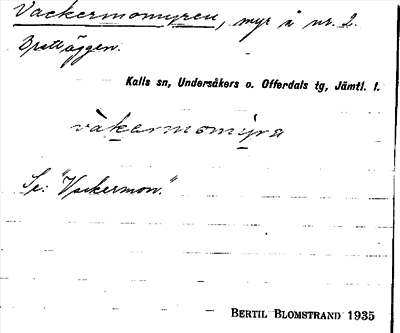 Vackermomyren, myr å nr. 2.
Bratläggen.
Kalls sn, Undersåkers o. Offerdals tg, Jämtl. l.
vàkermomỳra
Se: "Vackermon."
BERTIL BLOMSTRAND 1935